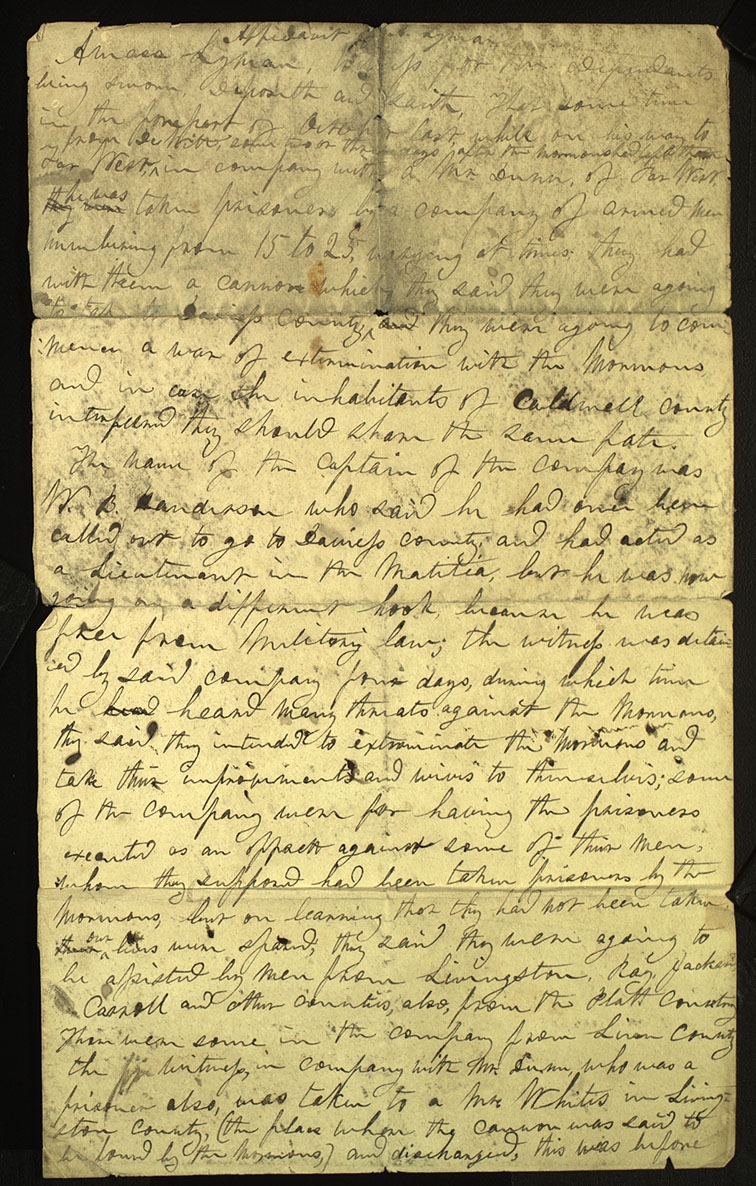 Affidavit Lyman
Amasa Lyman, witness for the defendants
being sworn, deposeth and saith, That some time
in the forepart of October last, while on his way to
from DeWitt, some two or three days after the mormons had left there
Far West, in company with a Mr. Dunn, of Far West
he was
they were taken prisoners by a company of armed men
numbering from 15 to 25, varying at times. They had
with them a cannon which they said they were agoing
to take to Daviess County, and they were agoing to com
mence a war of extermination with the Mormons,
and in case the inhabitants of Caldwell County
interfered they should share the same fate.
The name of the captain of the company was
W. B. who said he had once been
called out to go to Daviess County, and had acted as
a Lieutenant in the Malitia, but he was now
going on a different hook, because he was
free from Military law; the witness was detain
ed by said company four days, during which time
he had heard many threats against the Mormons,
they said they intended to exterminate the Mormons and
take their improvements and wives to themselves; some
of the company were for having the prisoners
executed as an offsett against some of their men,
whom they supposed had been taken prisoners by the
Mormons, but on learning that they had not been taken
our
their lives were spared; they said they were agoing to
be assisted by men from Livingston, Ray, Jackson
Carroll and other counties, also, from the Platt Country
There were some in the company from Linn County
the witness, in company with Mr. Dunn, who was a
prisoner also, was taken to a Mr. Whites in Living-
ston County, (the place where the cannon was said to
be found by the Mormons,) and discharged, this was before